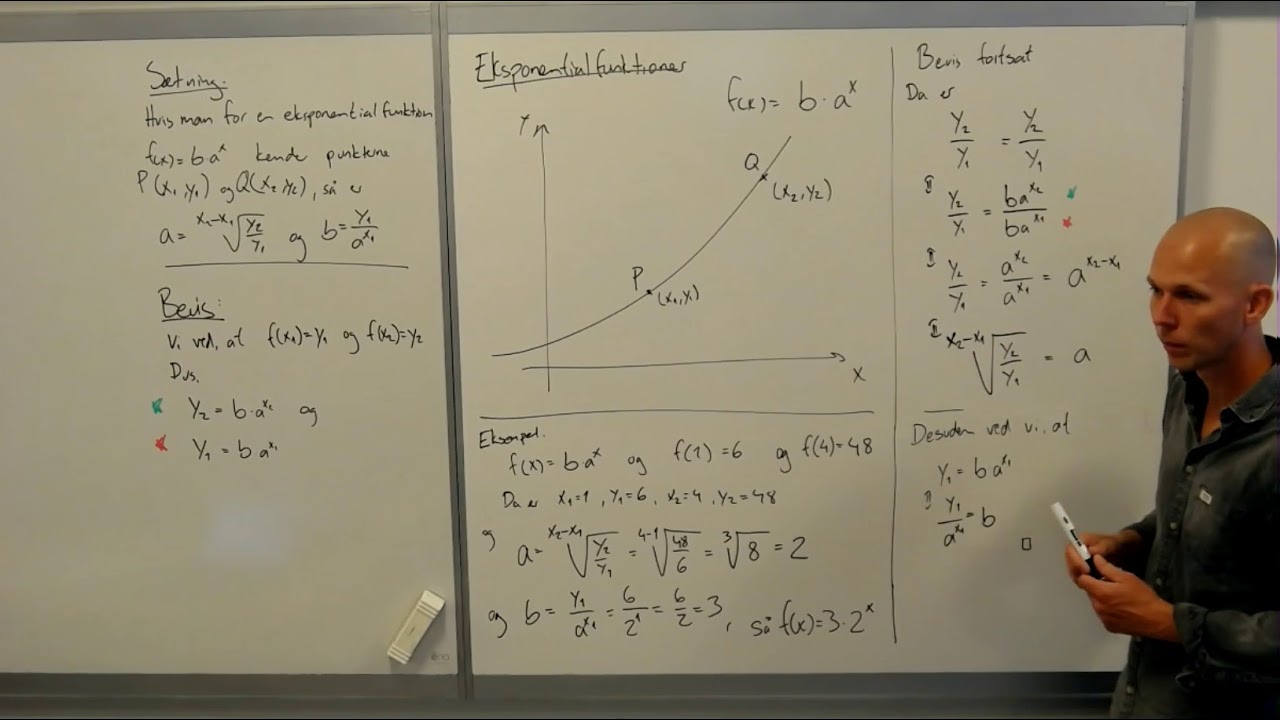 Sætning:
Hvis man for en eksponentialfunktion
f(x)=b·a^x kender punkterne
P(x₁,y₁) og Q(x₂,y₂), så er
a = ^(x₂-x₁)√(y₂/y₁) og b = y₁/a^x₁
Bevis:
Vi ved, at f(x₁)=y₁ og f(x₂)=y₂
Dvs.
y₂ = b·a^x₂ og
y₁ = b a^x₁
Eksponentialfunktioner
f(x) = b·a^x
Y
Q
(x₂,y₂)
P
(x₁,y₁)
X
Eksempel.
f(x) = b a^x og f(1)=6 og f(4)=48
Da er x₁=1, y₁=6, x₂=4, y₂=48
og a = ^(x₂-x₁)√(y₂/y₁) = ^(4-1)√(48/6) = ³√8 = 2
og b = y₁/a^x₁ = 6/2^1 = 6/2 = 3, så f(x)=3·2^x
Bevis fortsat
Da er
y₂/y₁ = y₂/y₁
⇕ y₂/y₁ = ba^x₂/ba^x₁
⇕ y₂/y₁ = a^x₂/a^x₁ = a^(x₂-x₁)
⇕ ^(x₂-x₁)√(y₂/y₁) = a
Desuden ved vi, at
y₁ = b a^x₁
⇕ y₁/a^x₁ = b
□